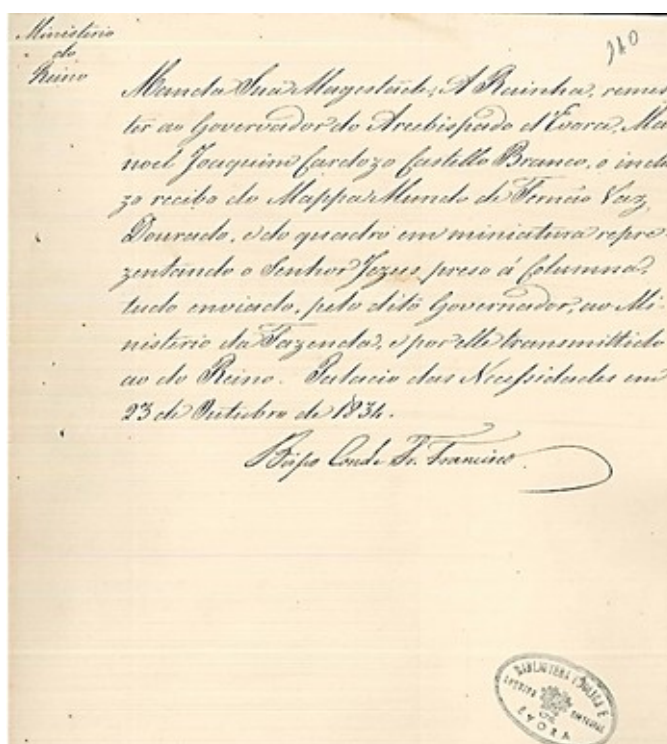 Ministerio
do
Reino
240
Manda Sua Magestade, A Rainha, remet
ter ao Governador do Arcebispado d'Evora, Ma
noel Joaquim Cardozo Castello Branco, o inclu
zo recibo do Mappa Mundo de Fernão Vaz
Dourado, e do quadro em miniatura repre
zentando o Senhor Jezus preso á Columna,
tudo enviado, pelo dito Governador, ao Mi-
nisterio da Fazenda, e por elle transmittido
ao do Reino. Palacio das Necessidades em
23 de Outubro de 1834.
Bispo Conde Fr. Francisco.
BIBLIOTHECA PUBLICA E
ARCHIVO DISTRICTAL
DE
EVORA